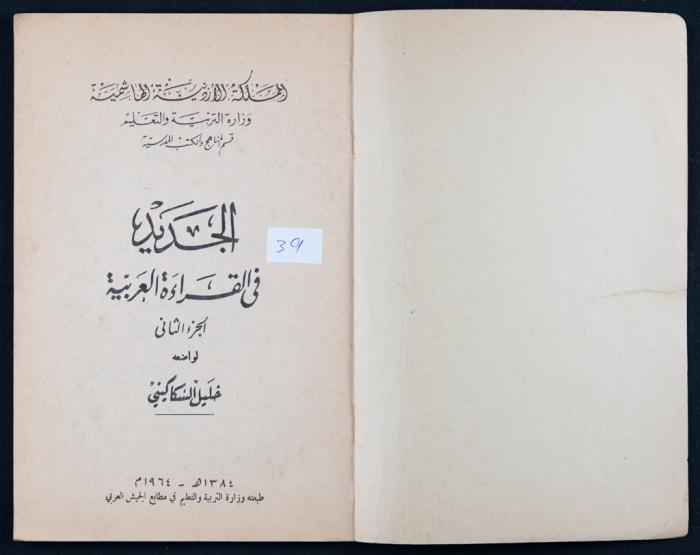 المملكة الأردنية الهاشمية
وزارة التربية والتعليم
قسم المناهج والكتب المدرسية
الجديد
39
في القراءة العربية
الجزء الثاني
لواضعه
خليل السكاكيني
١٣٨٤هـ - ١٩٦٤م
طبعته وزارة التربية والتعليم في مطابع الجيش العربي